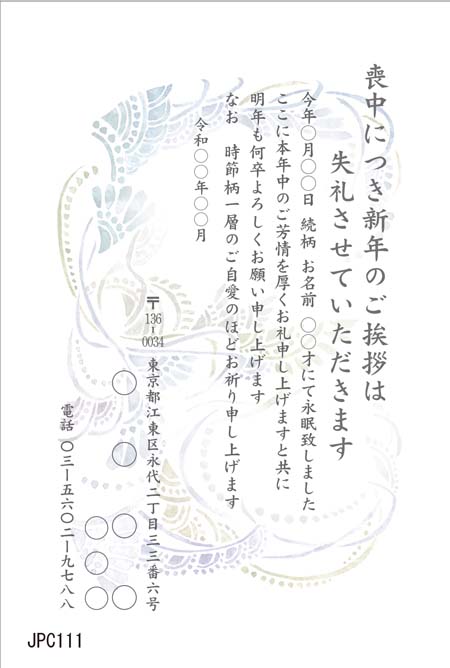 喪中につき新年のご挨拶は
失礼させていただきます
今年〇月〇〇日 続柄 お名前 〇〇才にて永眠致しました
ここに本年中のご芳情を厚くお礼申し上げますと共に
明年も何卒よろしくお願い申し上げます
なお 時節柄一層のご自愛のほどお祈り申し上げます
令和〇〇年〇〇月
〒136-0034
東京都江東区永代二丁目三三番六号
〇〇〇〇
〇〇〇
電話 〇三ー五六〇二ー九七八八
JPC111